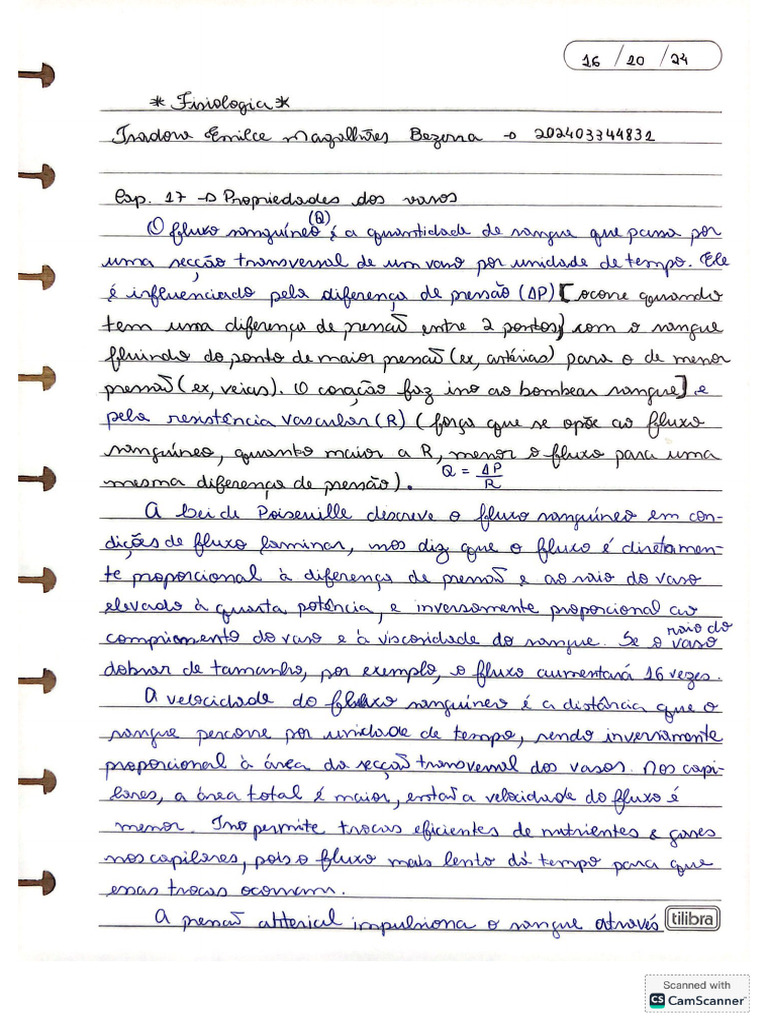 16 / 10 / 24
* Fisiologia *
Isadora Emilce Magalhães Bezerra → 202403344832
Cap. 17 → Propriedades dos vasos
O fluxo sanguíneo (Q) é a quantidade de sangue que passa por
uma secção transversal de um vaso por unidade de tempo. Ele
é influenciado pela diferença de pressão (ΔP) [ocorre quando
tem uma diferença de pressão entre 2 pontos, com o sangue
fluindo do ponto de maior pressão (ex, artérias) para o de menor
pressão (ex, veias). O coração faz isso ao bombear sangue] e
pela resistência vascular (R) (força que se opõe ao fluxo
sanguíneo, quanto maior a R, menor o fluxo para uma
mesma diferença de pressão). Q = ΔP/R
A Lei de Poiseuille descreve o fluxo sanguíneo em con-
dições de fluxo laminar, nos diz que o fluxo é diretamen-
te proporcional à diferença de pressão e ao raio do vaso
elevado à quarta potência, e inversamente proporcional ao
comprimento do vaso e à viscosidade do sangue. Se o raio do vaso
dobrar de tamanho, por exemplo, o fluxo aumentará 16 vezes.
A velocidade do fluxo sanguíneo é a distância que o
sangue percorre por unidade de tempo, sendo inversamente
proporcional à área da secção transversal dos vasos. Nos capi-
lares, a área total é maior, então a velocidade do fluxo é
menor. Isso permite trocas eficientes de nutrientes e gases
nos capilares, pois o fluxo mais lento dá tempo para que
essas trocas ocorram.
A pressão arterial impulsiona o sangue através
tilibra
Scanned with
CS CamScanner